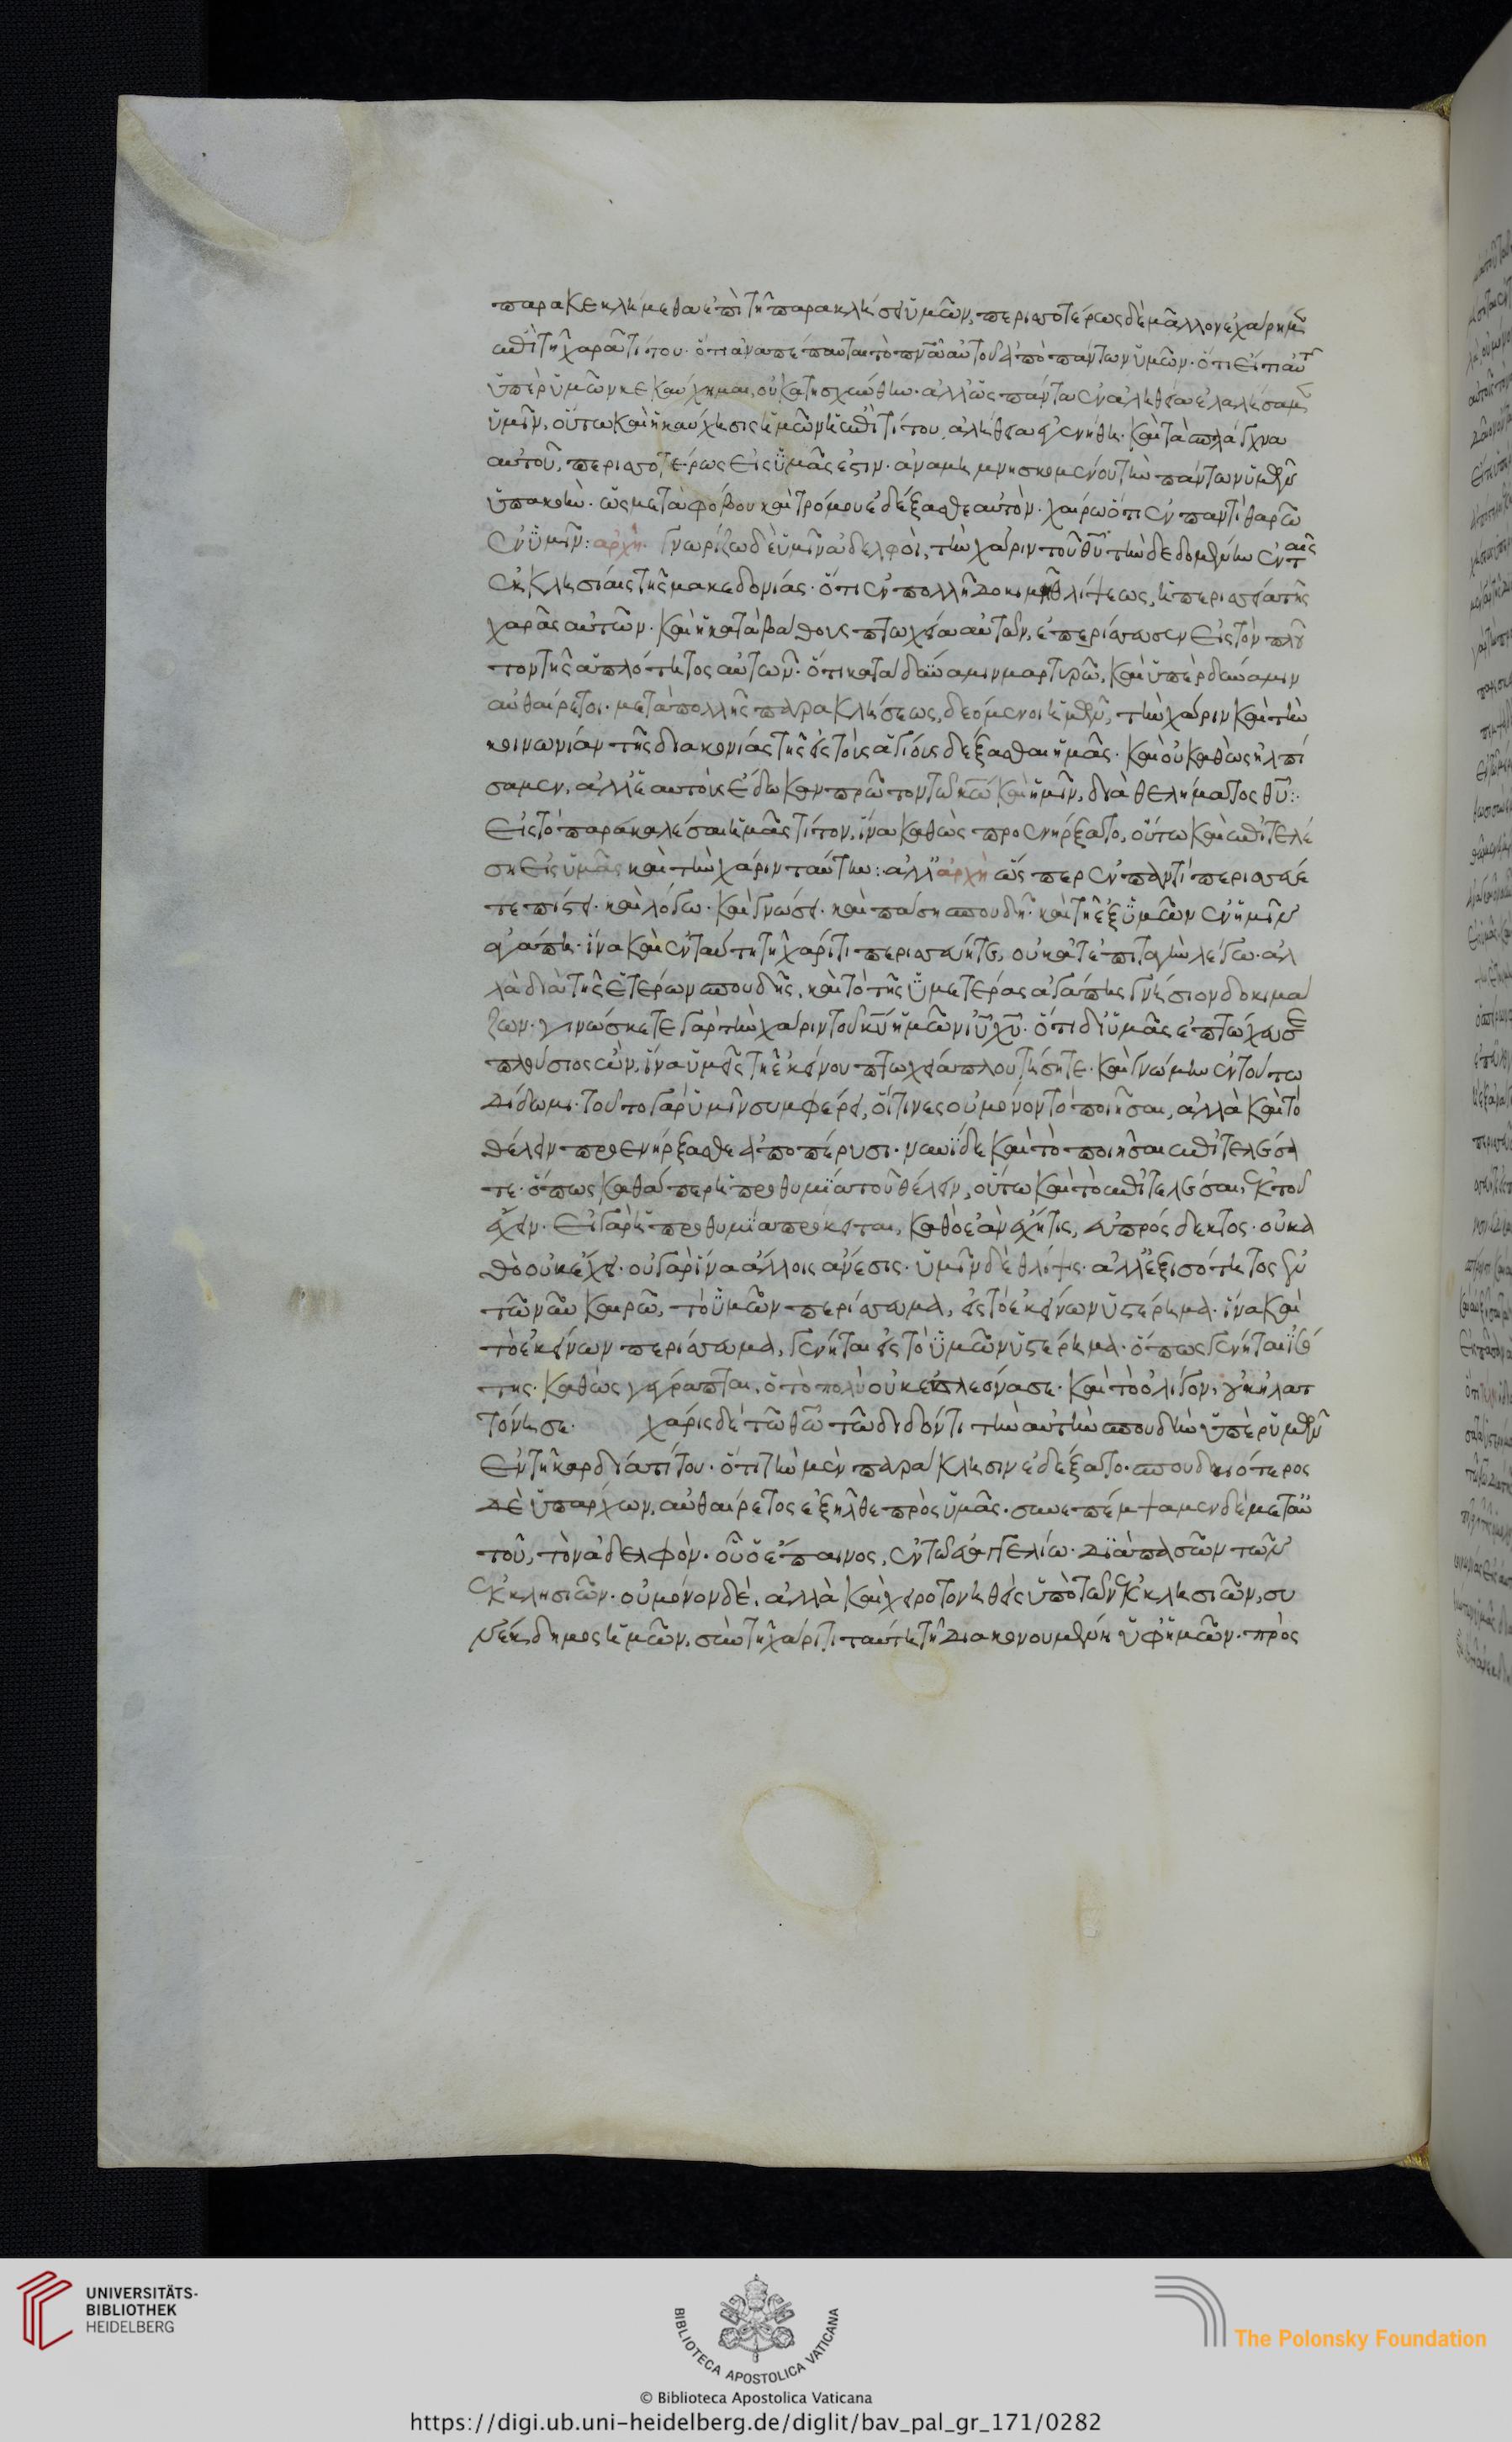 παρακεκλήμεθα ἐπὶ τῆ παρακλήσει ὑμῶν, περισσοτέρως δὲ μᾶλλον ἐχάρημεν
ἐπὶ τῆ χαρᾶ τίτου· ὅτι ἀναπέπαυται τὸ πνα αὐτοῦ ἀπὸ πάντων ὑμῶν· ὅτι εἴ τι αὐτῶ
ὑπὲρ ὑμῶν κεκαύχημαι, οὐ κατησχύνθην· ἀλλ' ὡς πάντα ἐν ἀληθεία ἐλαλήσαμεν
ὑμῖν, οὕτω καὶ ἡ καύχησις ἡμῶν ἡ ἐπὶ τίτου, ἀλήθεια ἐγενήθη· καὶ τὰ σπλάγχνα
αὐτοῦ, περισσοτέρως εἰς ὑμᾶς ἐστιν· ἀναμιμνησκομένου τὴν πάντων ὑμῶν
ὑπακοὴν· ὡς μετὰ φόβου καὶ τρόμου ἐδέξασθε αὐτὸν· χαίρω ὅτι ἐν παντὶ θαρρῶ
ἐν ὑμῖν: ἀρχὴ· γνωρίζω δὲ ὑμῖν ἀδελφοὶ, τὴν χάριν τοῦ θυ τὴν δεδομένην ἐν ταῖς
ἐκκλησίαις τῆς μακεδονίας· ὅτι ἐν πολλῆ δοκιμῆ θλίψεως, ἡ περισσεία τῆς
χαρᾶς αὐτῶν· καὶ ἡ κατὰ βάθους πτωχεία αὐτῶν, ἐπερίσσευσεν εἰς τὸν πλοῦ
τον τῆς ἁπλότητος αὐτῶν· ὅτι κατὰ δύναμιν μαρτυρῶ, καὶ ὑπὲρ δύναμιν
αὐθαίρετοι· μετὰ πολλῆς παρακλήσεως, δεόμενοι ἡμῶν, τὴν χάριν καὶ τὴν
κοινωνίαν τῆς διακονίας τῆς εἰς τοὺς ἁγίους δέξασθαι ἡμᾶς· καὶ οὐ καθὼς ἠλπί
σαμεν, ἀλλ' ἑαυτοὺς ἔδωκαν πρῶτον τῶ κω καὶ ἡμῖν, διὰ θελήματος θυ:
εἰς τὸ παρακαλέσαι ἡμᾶς τίτον, ἵνα καθὼς προενήρξατο, οὕτω καὶ ἐπιτελέ
ση εἰς ὑμᾶς καὶ τὴν χάριν ταύτην: ἀλλ' ἀρχὴ ὥσπερ ἐν παντὶ περισσεύε
τε πίστει· καὶ λόγω· καὶ γνώσει· καὶ πάση σπουδῆ· καὶ τῆ ἐξ ὑμῶν ἐν ἡμῖν
ἀγάπη· ἵνα καὶ ἐν ταύτη τῆ χάριτι περισσεύητε, οὐ κατ' ἐπιταγὴν λέγω· ἀλ
λὰ διὰ τῆς ἑτέρων σπουδῆς, καὶ τὸ τῆς ὑμετέρας ἀγάπης γνήσιον δοκιμά
ζων· γινώσκετε γὰρ τὴν χάριν τοῦ κυ ἡμῶν ιυ χυ· ὅτι δι' ὑμᾶς ἐπτώχευσε
πλούσιος ὢν, ἵνα ὑμεῖς τῆ ἐκείνου πτωχεία πλουτήσητε· καὶ γνώμην ἐν τούτω
δίδωμι· τοῦτο γὰρ ὑμῖν συμφέρει, οἵτινες οὐ μόνον τὸ ποιῆσαι, ἀλλὰ καὶ τὸ
θέλειν προενήρξασθε ἀπὸ πέρυσι· νυνὶ δὲ καὶ τὸ ποιῆσαι ἐπιτελέσα
τε· ὅπως καθάπερ ἡ προθυμία τοῦ θέλειν, οὕτω καὶ τὸ ἐπιτελέσαι, ἐκ τοῦ
ἔχειν· εἰ γὰρ ἡ προθυμία πρόκειται, καθὸ ἐὰν ἔχη τις, εὐπρόσδεκτος· οὐ κα
θὸ οὐκ ἔχει· οὐ γὰρ ἵνα ἄλλοις ἄνεσις· ὑμῖν δὲ θλίψις· ἀλλ' ἐξ ἰσότητος ἐν
τῶ νῦν καιρῶ, τὸ ὑμῶν περίσσευμα, εἰς τὸ ἐκείνων ὑστέρημα· ἵνα καὶ
τὸ ἐκείνων περίσσευμα, γένηται εἰς τὸ ὑμῶν ὑστέρημα· ὅπως γένηται ἰσό
της· καθὼς γέγραπται, ὁ τὸ πολὺ οὐκ ἐπλεόνασε· καὶ ὁ τὸ ὀλίγον, οὐκ ἠλατ
τόνησε· χάρις δὲ τῶ θω τῶ διδόντι τὴν αὐτὴν σπουδὴν ὑπὲρ ὑμῶν
ἐν τῆ καρδία τίτου· ὅτι τὴν μὲν παράκλησιν ἐδέξατο· σπουδαιότερος
δὲ ὑπάρχων, αὐθαίρετος ἐξῆλθε πρὸς ὑμᾶς· συνεπέμψαμεν δὲ μετ' αὐ
τοῦ, τὸν ἀδελφὸν· οὗ ὁ ἔπαινος, ἐν τῶ εὐαγγελίω· διὰ πασῶν τῶν
ἐκκλησιῶν· οὐ μόνον δὲ, ἀλλὰ καὶ χειροτονηθεὶς ὑπὸ τῶν ἐκκλησιῶν, συ
νέκδημος ἡμῶν, σὺν τῆ χάριτι ταύτη τῆ διακονουμένη ὑφ' ἡμῶν· πρὸς
UNIVERSITÄTS-
BIBLIOTHEK
HEIDELBERG
BIBLIOTECA APOSTOLICA VATICANA
© Biblioteca Apostolica Vaticana
The Polonsky Foundation
https://digi.ub.uni-heidelberg.de/diglit/bav_pal_gr_171/0282